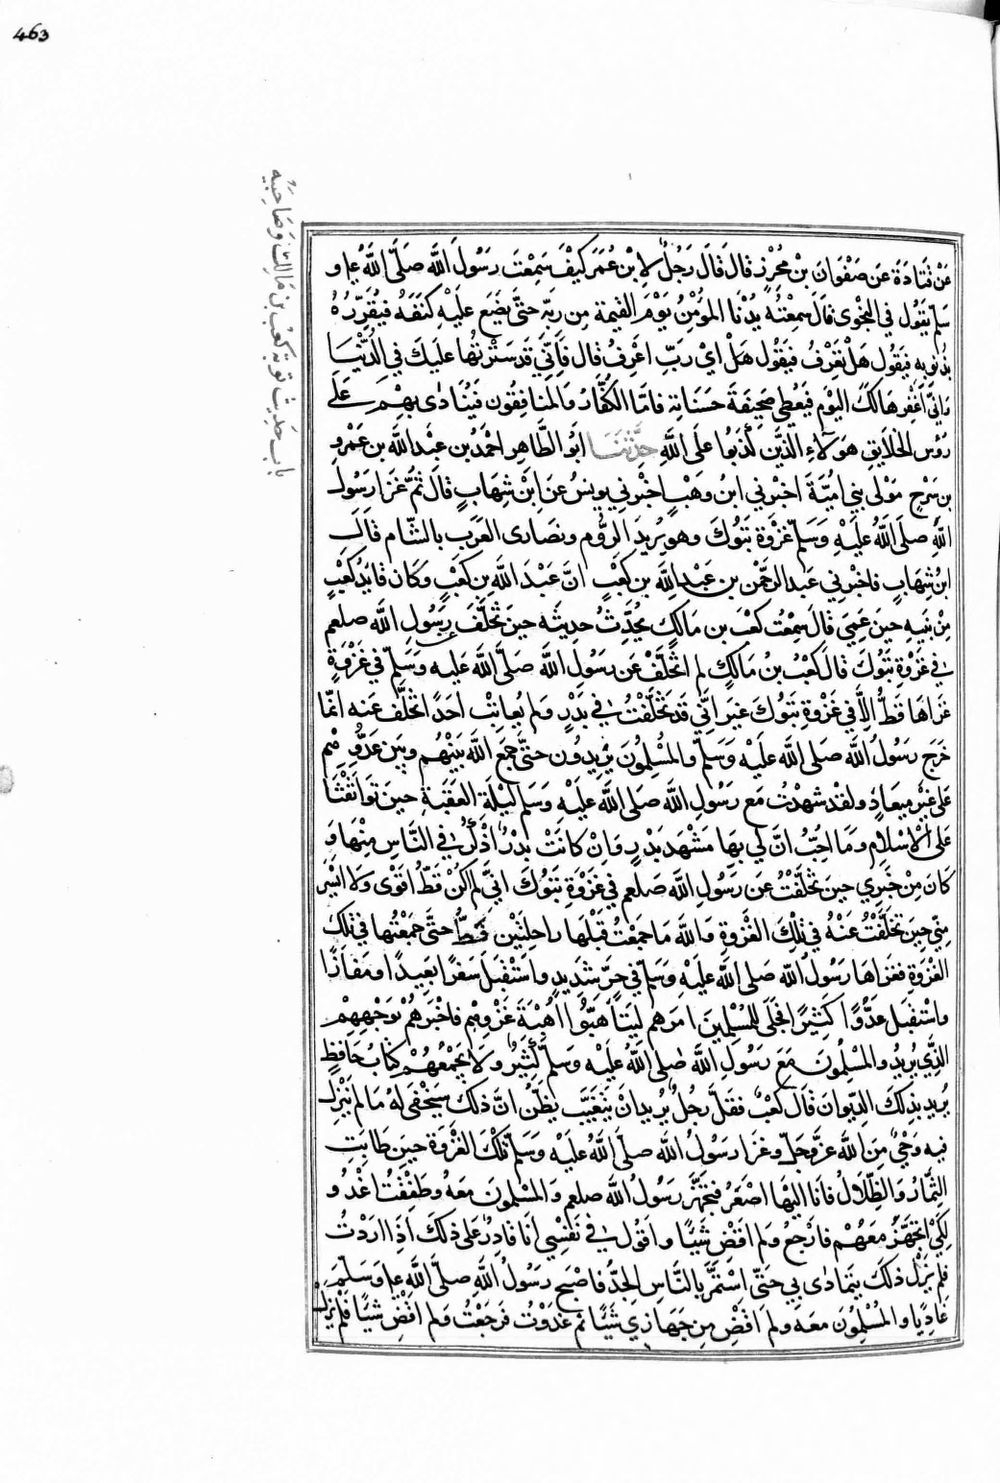 463
باب حديث توبة كعب بن مالك وصاحبيه
عَنْ قَتَادَةَ عَن صَفْوَانَ بْنِ مُحْرِزٍ قَالَ قَالَ رَجُلٌ لِابْنِ عُمَرَ كَيْفَ سَمِعْتَ رَسُولَ اللَّهِ صَلَّى اللَّهُ عليه و
سلّم يَقُول في النَّجْوى قالَ سَمِعْتُهُ يُدْنَا المُؤمِنُ يَوْمَ القيمةِ مِن رَبّه حَتَّى يَضَعَ عَلَيْهِ كَنَفَهُ فيُقَرِّرُهُ
بذُنوبِهِ فيَقول هَلْ تَعْرِفُ فَيقُول هَلْ اىْ رَبِّ اعْرِفُ قال فَإنّي قَد سَتَرْتُها عَلَيكَ فِي الدُّنْيَا
وَانّي اَغْفِرهَا لكَ اليَوْمَ فيُعْطِي صَحيفَةَ حَسَنَاتِهِ فَامَّا الكُفَّارُ وَالمنَافِقُونَ فَيُنَادٰى بِهِمْ عَلَى
رَؤُسِ الخَلايقِ هوَلاءِ الذّينَ كَذَبُوا عَلَى اللَّهِ حَدَّثَنَا ابُو الطَّاهِرِ احْمَدُ بن عَبْدِ اللَّه بن عَمْرِو
بن سَرْحٍ مَوْلى بني اُمَيَّةَ اخبَرني ابنُ وَهْبٍ اخْبرني يونسُ عَنِ ابْنِ شِهَابٍ قالَ ثُمَّ غزَا رَسُولُ
اللَّهِ صَلَّى اللَّهُ عَلَيْهِ وَسَلَّمَ غَزْوَةَ تَبُوكَ وهو يُريدُ الرُّومَ ونصَارَى العَرَب بالشّام قَالَ
ابنُ شِهَابٍ فاخْبَرني عَبدُ الرَّحْمٰن بن عَبْدِ اللَّهِ بن كَعْبٍ انَّ عَبْدَ اللَّهِ بن كَعْبٍ وَكَانَ قَايدَ كَعْبٍ
مِنْ بَنيهِ حينَ عَمِيَ قالَ سَمِعْتُ كَعْبَ بن مَالكٍ يُحَدِّثُ حَديثَهُ حينَ تَخَلَّفَ عَن رَسُولِ اللَّهِ صلعم
في غَزْوَةِ تَبُوكَ قالَ كَعْبُ بنُ مَالكٍ لم اَتَخَلَّفْ عَن رسُولِ اللَّهِ صَلّى اللَّهُ عَلَيهِ وَسَلّمَ في غَزْوَةٍ
غزَاهَا قَطُّ اِلّا في غَزْوةِ تَبُوكَ غيرَ انّي قَد تَخَلَّفْتُ في بَدْرٍ ولم يُعاتِبْ اَحَدًا تَخَلَّفَ عَنْهُ انّمَا
خَرَجَ رَسُولُ اللَّه صَلى اللَّهُ عَلَيْهِ وَسَلّمَ والمُسْلِمُونَ يُرِيدُون حتَّى جمَعَ اللَّهُ بَيْنَهُم وبَين عَدُوِّهم
عَلى غَيرِ ميعَادٍ ولقد شهدْتُ مَع رَسُولِ اللَّهِ صَلى اللَّهُ عَلَيْهِ وَسَلم لَيْلةَ العَقَبَةِ حينَ تَواثقْنَا
عَلَى الاسْلامِ وَمَا احِبُّ انَّ لي بهَا مَشْهَدَ بَدْرٍ وَانْ كانَتْ بدْرٌ اذْكَرُ في النَّاسِ مِنْهَا وَ
كَانَ مِنْ خَبَرِي حينَ تَخَلَّفْتُ عَن رَسُولِ اللَّهِ صَلعم في غَزْوةِ تَبُوكَ انّي لم اكُنْ قَطُّ اقْوٰى وَلا ايْسَرَ
منّي حينَ تَخَلَّفْتُ عَنْهُ في تلكَ الغَزْوَةِ وَاللَّهِ مَا جمَعْتُ قَبْلَها راحِلَتَيْنِ قَطُّ حتَّى جَمَعْتُها في تلك
الغَزْوةِ فغزَاهَا رَسُولُ اللّه صَلى اللَّهُ عَلَيْهِ وَسَلّمَ في حَرٍّ شَديدٍ واسْتَقْبَلَ سَفَرًا بَعيدًا ومَفازًا
واسْتَقبَلَ عَدُوًّا كَثيرًا فجَلَى للمُسْلِمينَ امرَهم ليَتَأهَّبُوا اُهْبَةَ غَزْوِهم فاخبَرهُمْ بوَجْهِهِمُ
الذّي يُريدُ والمسْلِمُونَ مَعَ رَسُولِ اللَّهِ صَلى اللَّهُ عَلَيْه وَسَلّمَ كَثيرٌ ولا يَجْمَعُهُمْ كتَابُ حَافِظٍ
يُريد بذلكَ الدِّيوانَ قَالَ كَعْبٌ فقلَّ رجُلٌ يُريدُ انْ يَتَغَيَّبَ يَظُنُّ انَّ ذلكَ سَيَخْفى لَهُ مَا لم يَنْزِلْ
فيه وَحْيٌ مِنَ اللَّهِ عزَّ وَجَلَّ وغزَا رَسُولُ اللَّه صَلَّى اللَّهُ عَلَيْهِ وَسَلّم تلكَ الغَزْوةَ حينَ طَابَتِ
الثِّمَارُ وَالظِّلَالُ فَانَا اليهَا اصْعَرُ فتجَهّزَ رَسُولُ اللَّه صلعم وَالمسْلمونَ مَعَهُ وطَفِقْتُ اغْدُو
لِكَيْ اتجَهَّزَ مَعَهُمْ فَارْجعُ وَلم اَقْضِ شَيْئًا واَقُولُ في نَفْسِي اَنَا قَادِرٌ عَلى ذلكَ اذَا ارَدْتُ
فلم يَزَلْ ذلكَ يتمَادٰى بي حَتّى اسْتَمَرَّ بالنَّاسِ الجدُّ فاصْبَحَ رسُولُ اللَّه صَلَّى اللَّهُ عليه وَسَلَّمَ
غَادِيًا والمُسْلِمُونَ مَعَهُ ولم اَقْضِ مِن جَهَازِي شَيْئًا ثم غَدَوْتُ فرَجَعْتُ وَلم اَقْضِ شَيْئًا فَلم يَزَلْ